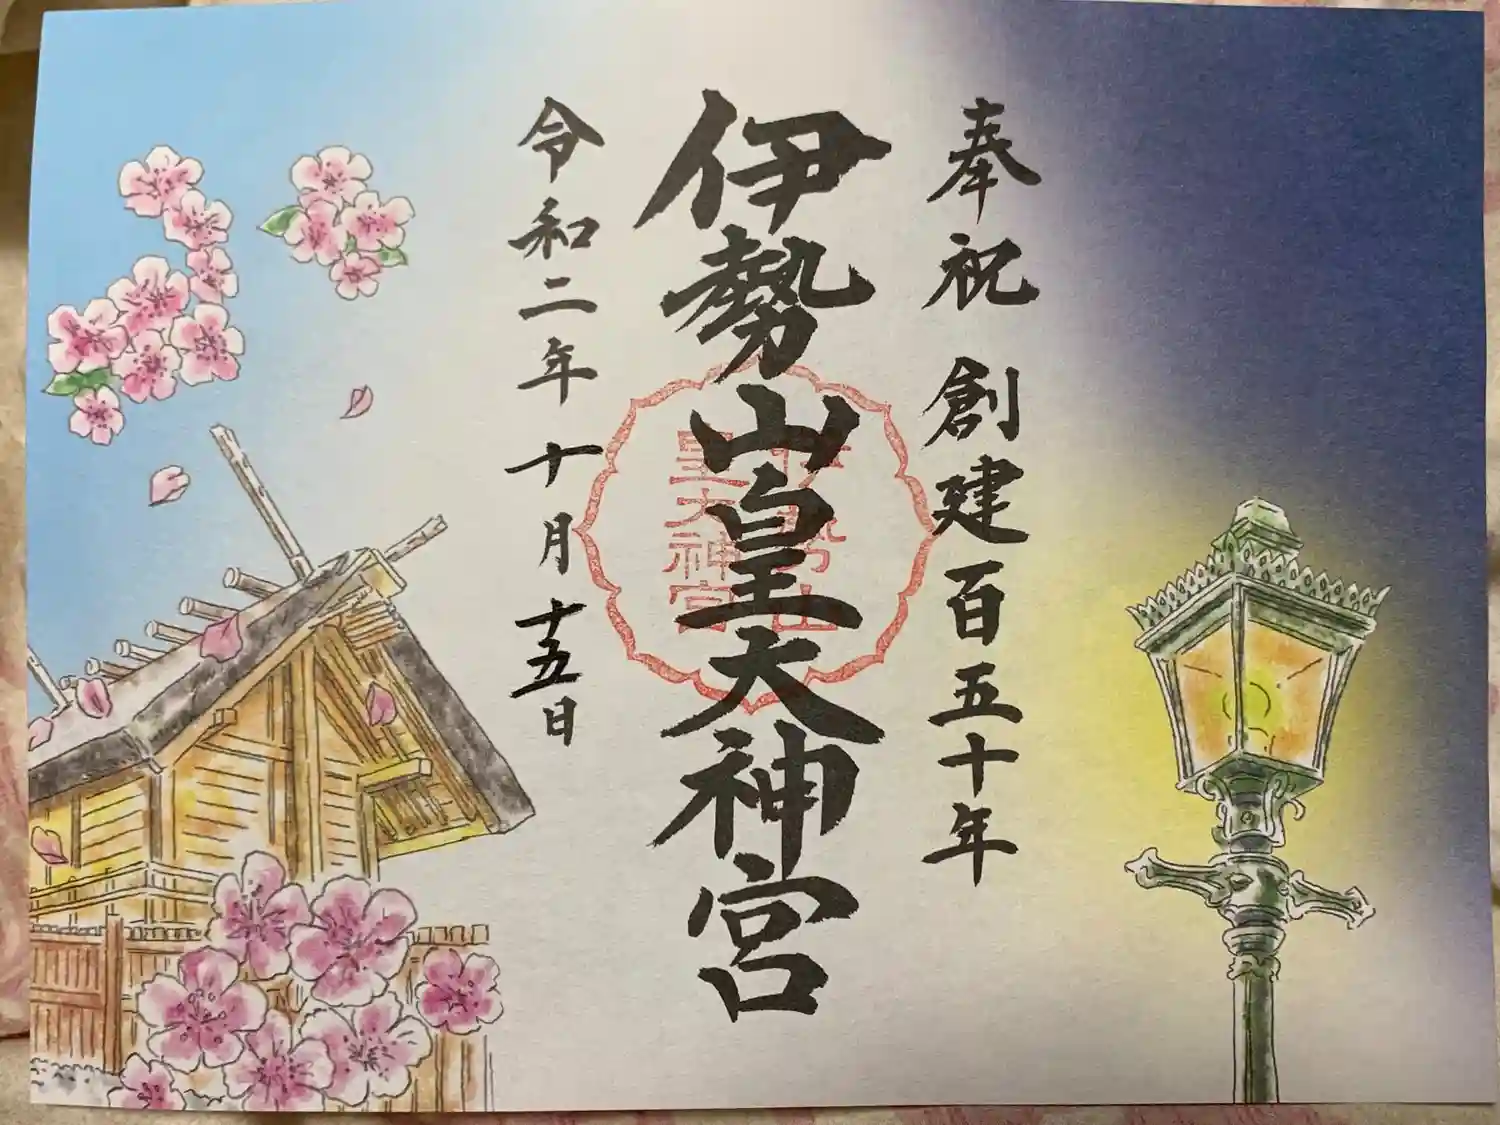 奉祝 創建百五十年
伊勢山皇大神宮
伊勢山
皇大神宮
令和二年 十月 十五日